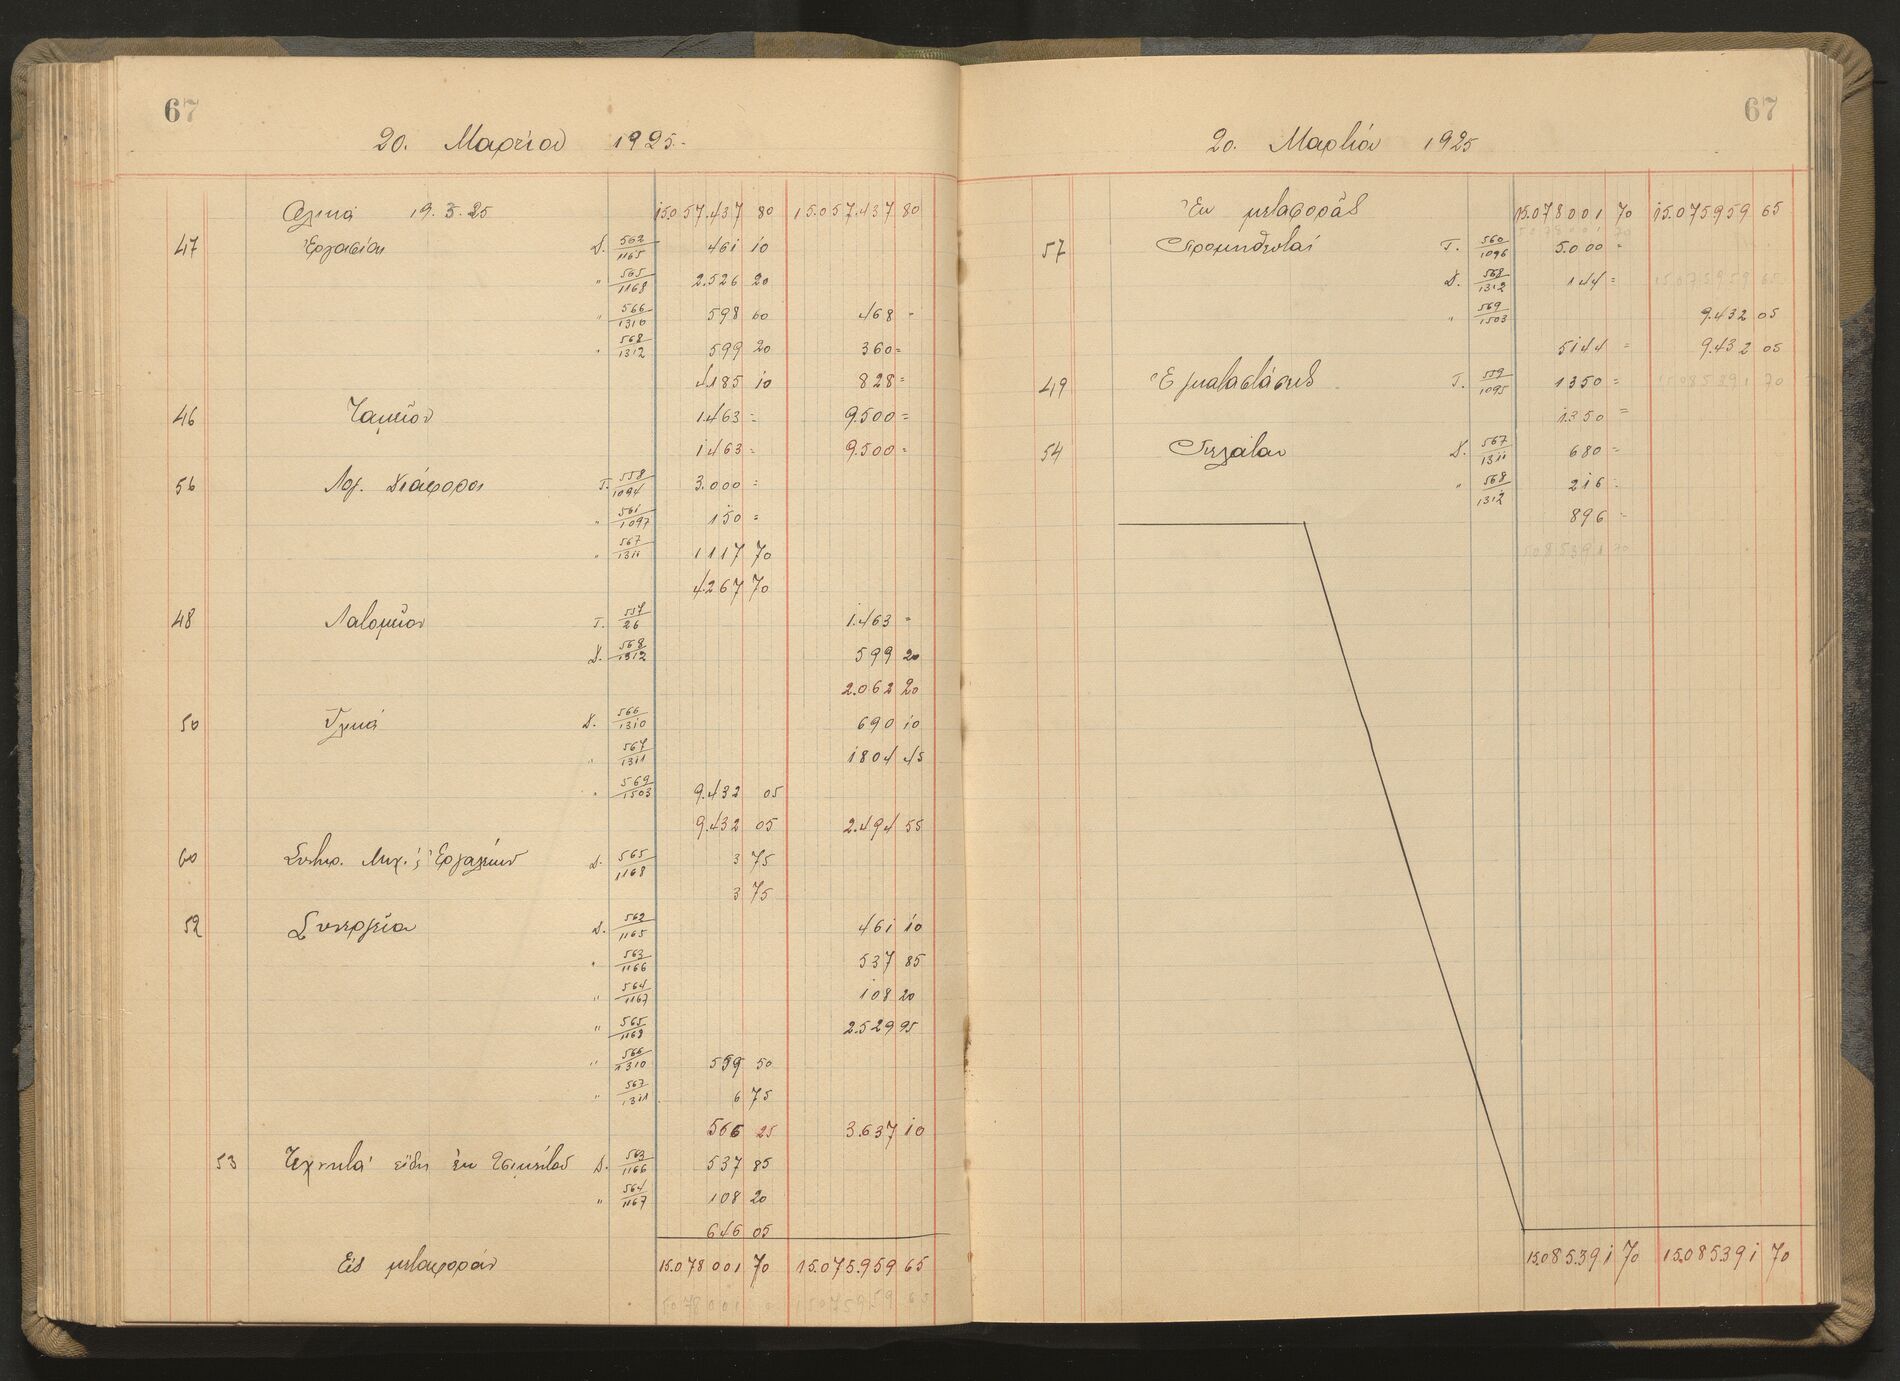 67
20. Μαρτίου 1925.-
Ολικά 19.3.25 15.057.437 80 15.057.437 80
47 Ἐργασίαι Δ. 562/1165 461 10
" 565/1168 2.526 20
" 566/1310 598 60 468 -
" 568/1312 599 20 360 =
4185 10 828 =
46 Ταμεῖον 1.463 = 9.500 =
1.463 = 9.500 =
56 Λογ. Διάφοροι Τ. 558/1094 3.000 =
" 561/1097 150 =
" 567/1311 1117 70
4.267 70
48 Λατομεῖον Τ. 557/26 1.463 =
Δ. 568/1312 599 20
2.062 20
50 Ὑλικά Δ. 566/1310 690 10
" 567/1311 1804 45
" 569/1503 9.432 05
9.432 05 2.494 55
60 Συντηρ. Μηχ. & Ἐργαλείων Δ. 565/1168 3 75
3 75
52 Συνεργεῖα Δ. 562/1165 461 10
" 563/1166 537 85
" 564/1167 108 20
" 565/1168 2.529 95
" 566/1310 559 50
" 567/1311 6 75
566 25 3.637 10
53 Τεχνητά εἴδη ἐκ Τσιμέντου Δ. 563/1166 537 85
" 564/1167 108 20
646 05
Εἰς μεταφοράν 15.078 001 70 15.075.959 65
15078001 70 15075959 65
67
20. Μαρτίου 1925
Ἐκ μεταφορᾶς 15.078001 70 15.075959 65
57 Προμηθευταί Τ. 560/1096 5.000 =
Δ. 568/1312 144 = 15075959 65
" 569/1503 9.432 05
5144 = 9.432 05
49 Ἐγκαταστάσεις Τ. 559/1095 1350 = 15085391 70
1350 =
54 Πελάται Δ. 567/1311 680 =
" 568/1312 216 =
896 =
15085391 70
15.085.391 70 15.085.391 70